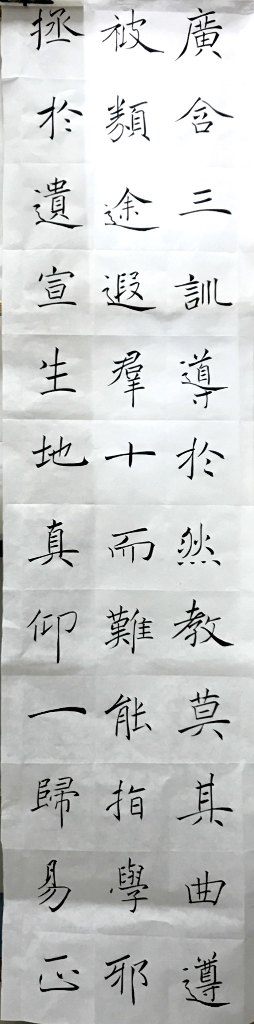 廣被拯
含類於
三途遺
訓遐宣
導羣生
於十地
然而真
教難仰
莫能一
其指歸
曲學易
遵邪正